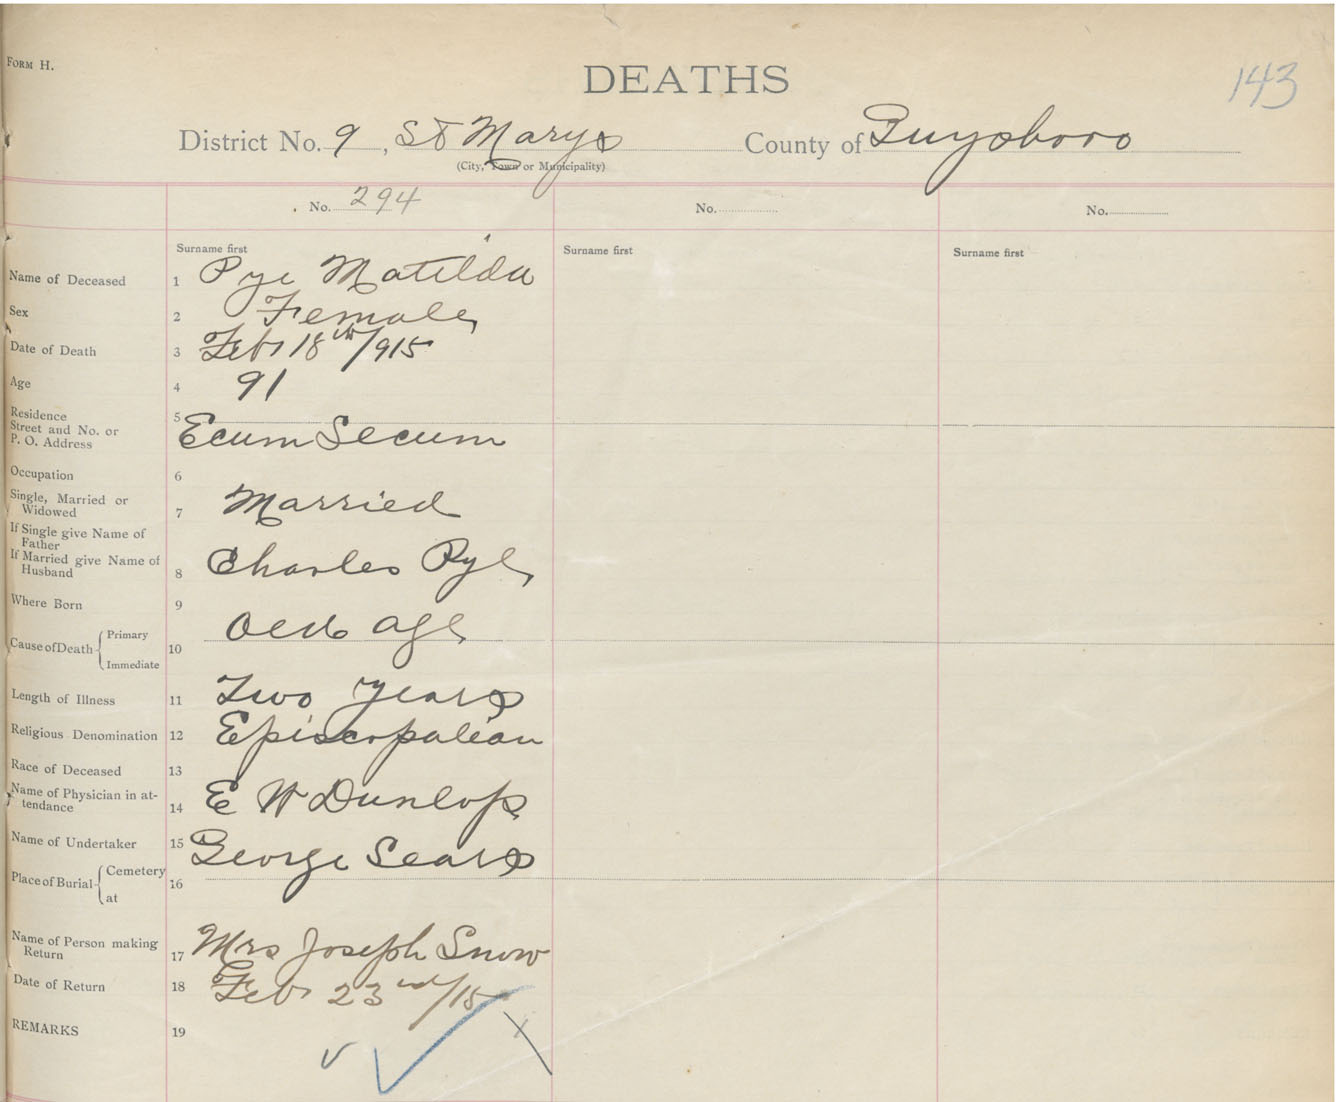 FORM H.
DEATHS
143
District No. 9, St Marys County of Guysboro
(City, Town or Municipality)
No. 294 No. No.
Surname first Surname first Surname first
Name of Deceased 1 Pye Matilda
Sex 2 Female
Date of Death 3 Feb 18th/915
Age 4 91
Residence 5
Street and No. or
P. O. Address Ecum Secum
Occupation 6
Single, Married or
Widowed 7 Married
If Single give Name of
Father
If Married give Name of
Husband 8 Charles Pye
Where Born 9
Cause of Death Primary Old age
10
Immediate
Length of Illness 11 Two years
Religious Denomination 12 Episcopalian
Race of Deceased 13
Name of Physician in at-
tendance 14 E W Dunlop
Name of Undertaker 15 George Sears
Place of Burial Cemetery
16
at
Name of Person making
Return 17 Mrs Joseph Snow
Date of Return 18 Feb 23rd/15
REMARKS 19